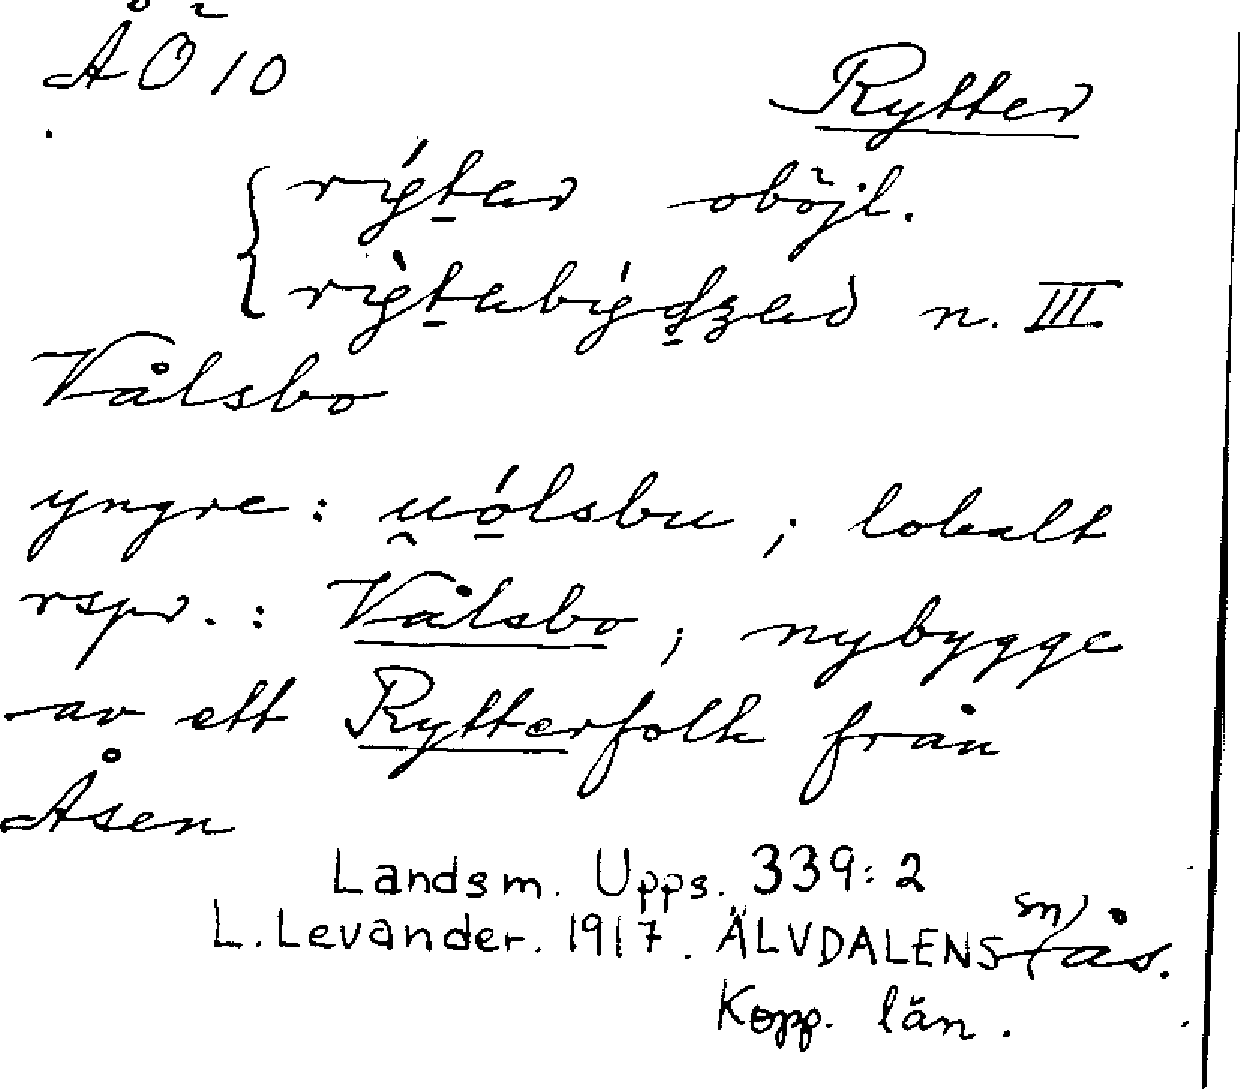 ÅÖ10
Rytter
rý̱ter oböjl.
rỳtabýḏʒeð n. III.
Vålsbo
yngre: u̯ó̱lsbu; lokalt
rspr.: Vålsbo; nybygge
av ett Rytterfolk från
Åsen
Landsm. Upps. 339:2
L. Levander. 1917. ÄLVDALENS sn/ ås.
Kopp. län.